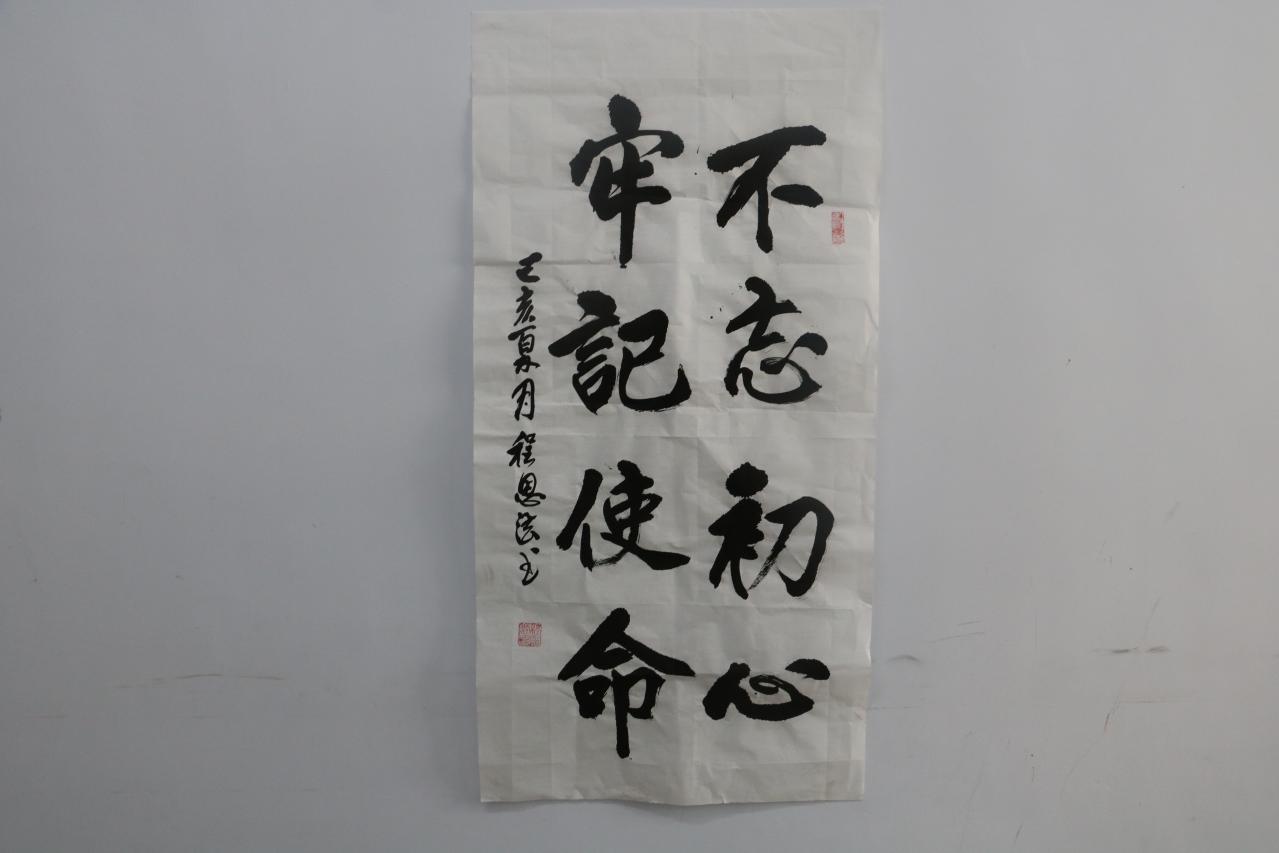 不忘初心
牢記使命
己亥夏月程恩浩书